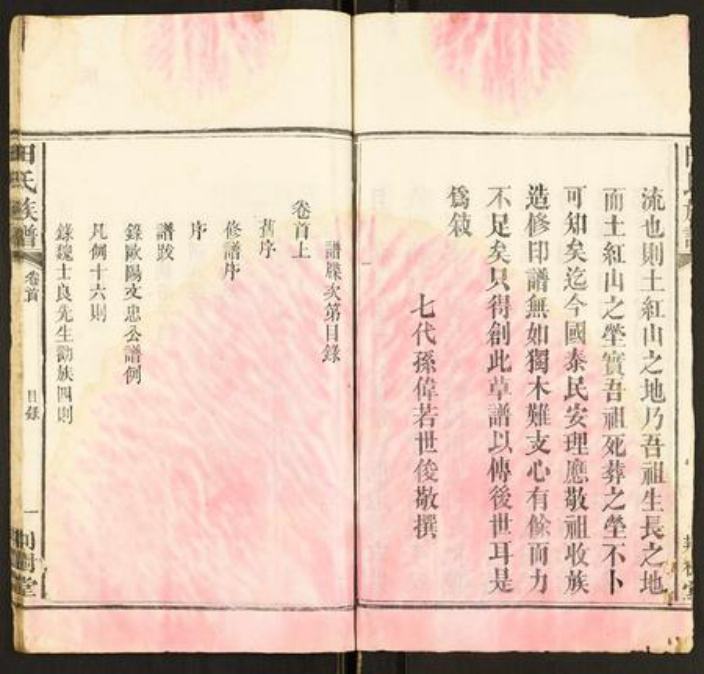 流也則土紅山之地乃吾祖生長之地
而土紅山之塋實吾祖死葬之塋不卜
可知矣迄今國泰民安理應敬祖收族
造修印譜無如獨木難支心有餘而力
不足矣只得創此草譜以傳後世耳是
爲敘
七代孫偉若世俊敬撰
譜牒次第目錄
卷首上
舊序
修譜序
序
譜跋
錄歐陽文忠公譜例
凡例十六則
錄魏士良先生勸族四則
田氏族譜
卷首
目錄
一